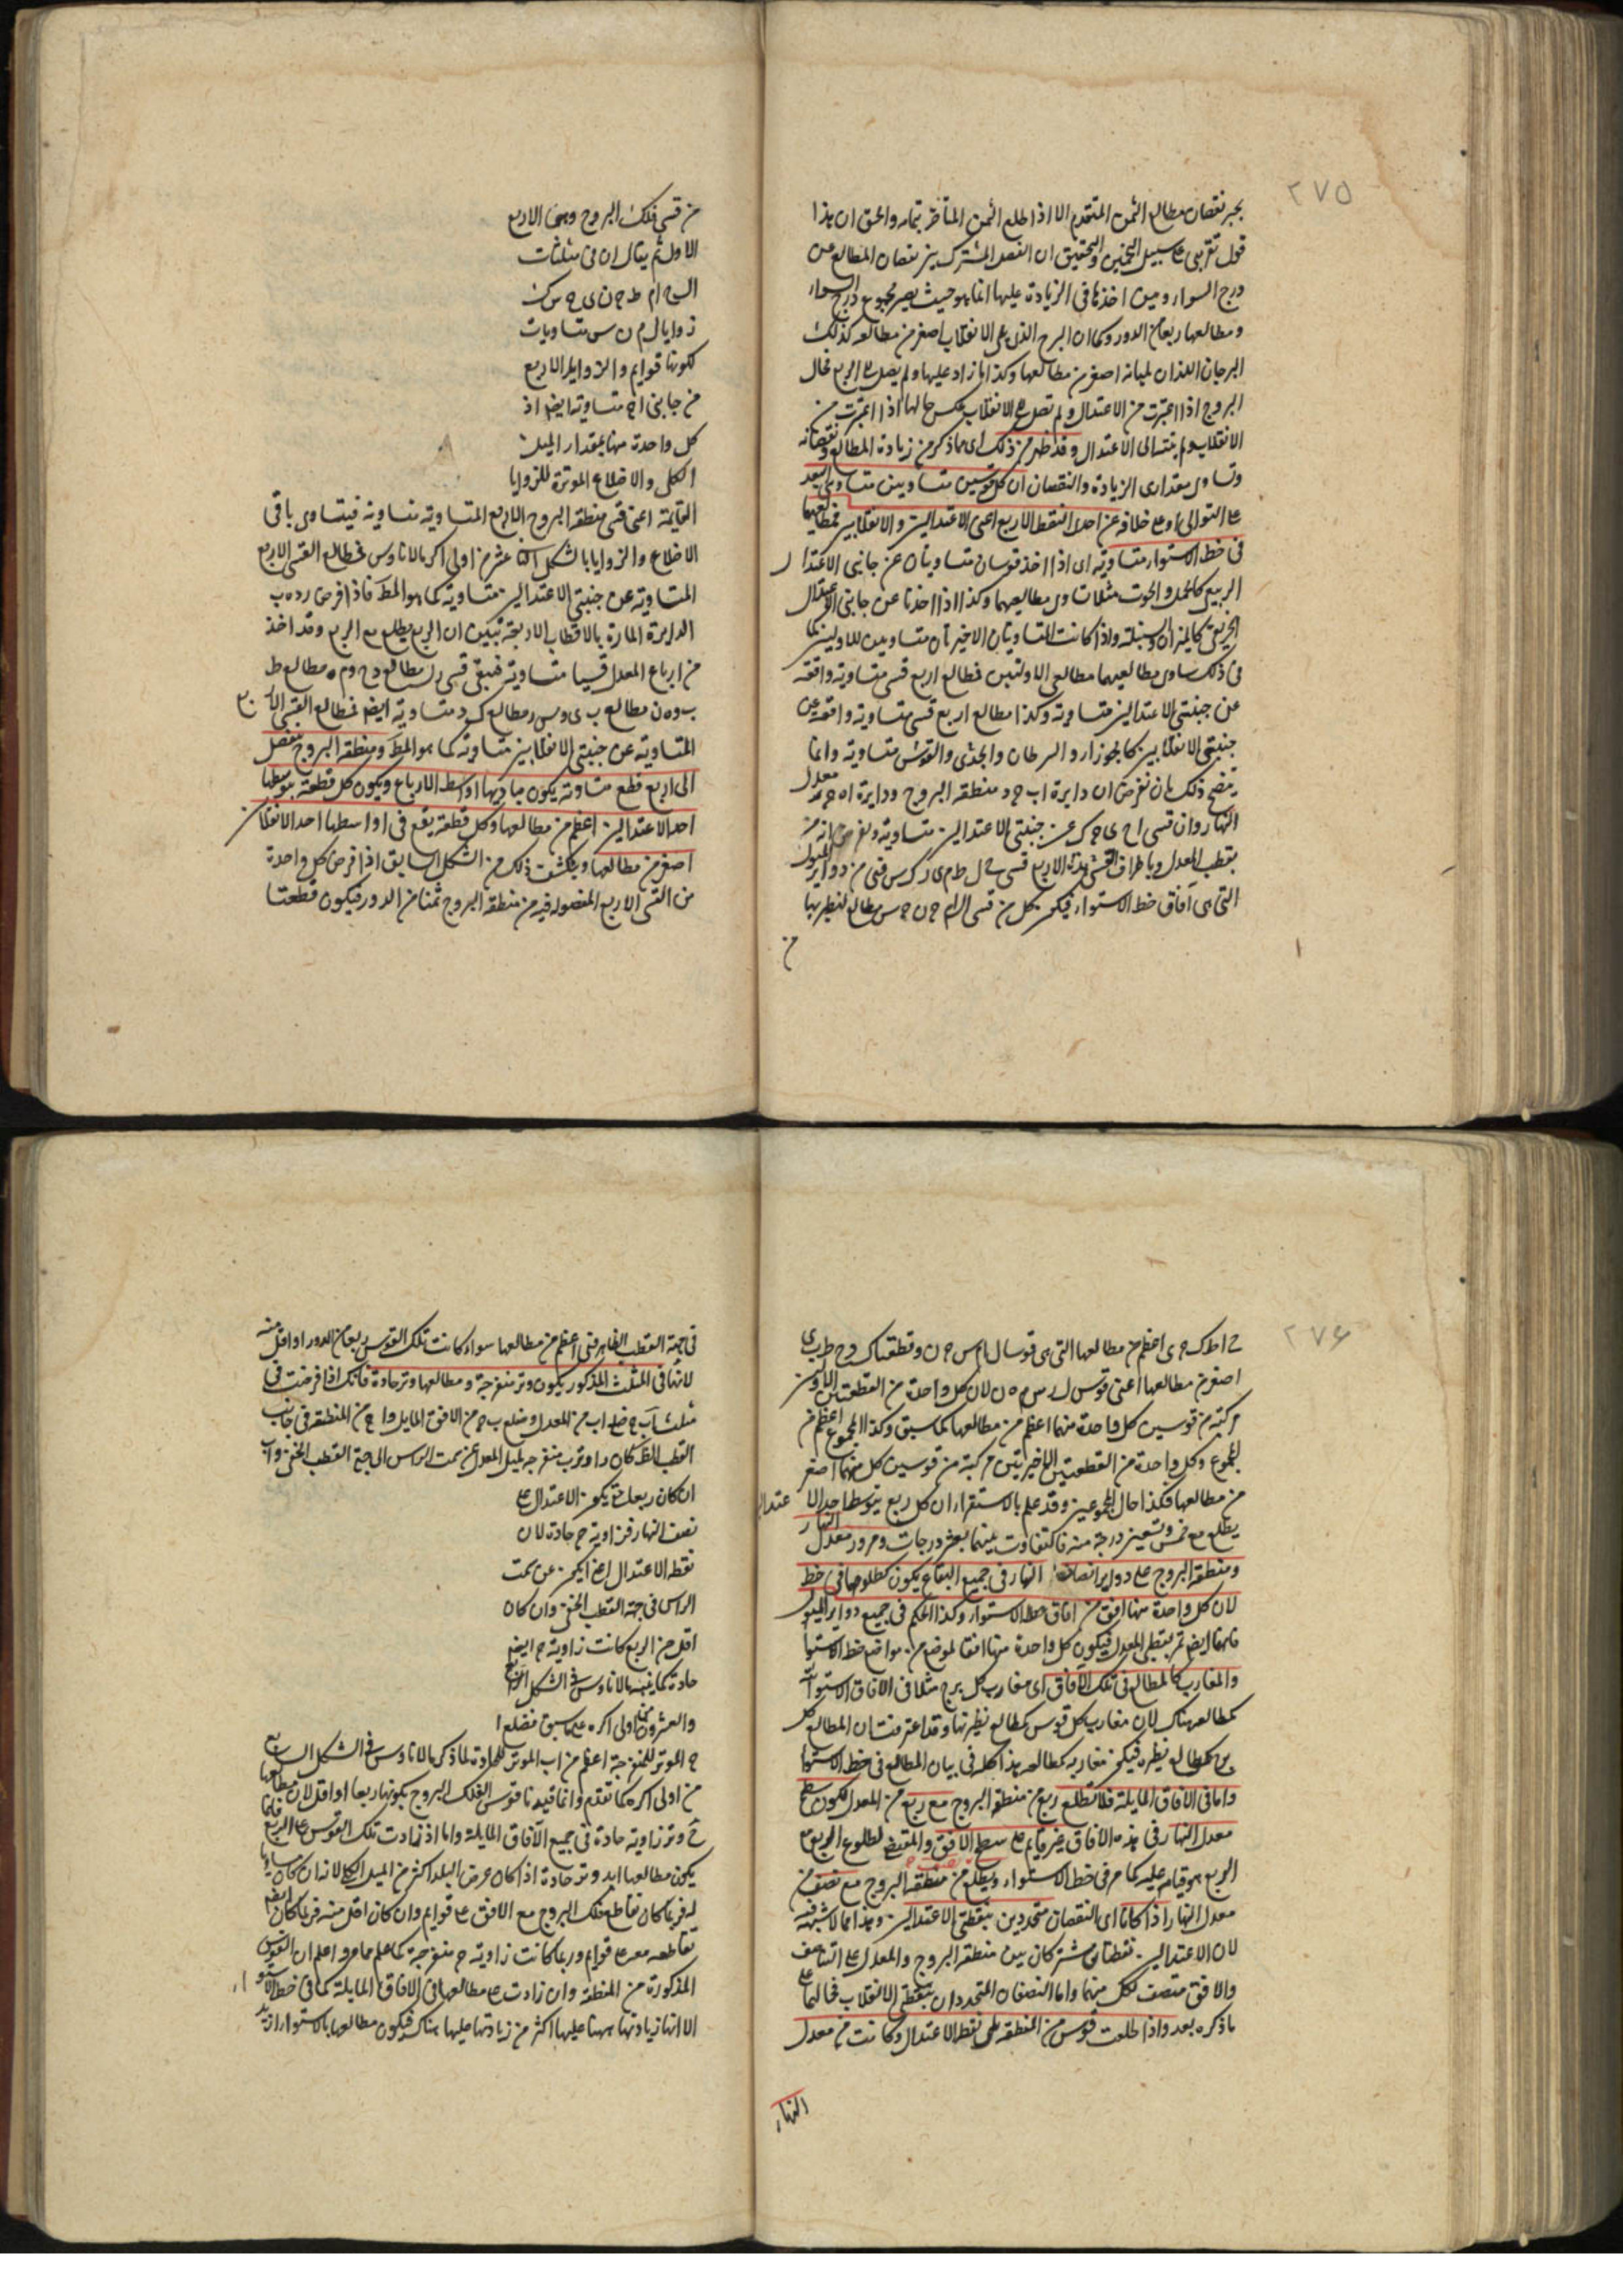 ٢٧٥
يجبر نقصان مطالع الثمن المتقدم الا اذا طلع الثمن المتأخر بتمامه والحق ان هذا
قول تقريبى على سبيل التخمين والتحقيق ان الفصل المشترك بين نقصان المطالع عن
درج السواء وبين اخذها فى الزيادة عليها انما هو حيث يصير مجموع درج السواء
ومطالعها ربعا من الدور وكما ان البرج الذى يلى الانقلاب اصغر من مطالعه كذلك
البرجان اللذان يليانه اصغر من مطالعهما وكذا ما زاد عليهما ولم يصل الى الربع فحال
البروج اذا اعتبرت من الاعتدال ولم تصل الى الانقلاب بعكس حالها اذا اعتبرت من
الانقلاب ولم ينته الى الاعتدال وقد ظهر من ذلك اى مما ذكر من زيادة المطالع ونقصانه
وتساوى مقدارى الزيادة والنقصان ان كل قوسين متساويتين متساويى البعد
على التوالى او على خلافه عن احدى النقط الاربع اعنى الاعتدالين والانقلابين فمطالعهما
فى خط الاستواء متساوية اى اذا اخذ قوسان متساويتان عن جانبى الاعتدال
الربيعى كالحمل والحوت مثلا تساوى مطالعهما وكذا اذا اخذتا عن جانبى الاعتدال
الخريفى كالميزان والسنبلة واذا كانت المتساويتان الاخيرتان متساويتين للاوليين كما
فى ذلك ساوى مطالعهما مطالعى الاوليين فمطالع اربع قسى متساوية واقعة
عن جنبتى الاعتدالين متساوية وكذا مطالع اربع قسى متساوية واقعة عن
جنبتى الانقلابين كالجوزاء والسرطان والجدى والقوس متساوية وانما
يتضح ذلك بان نفرض ان دايرة اب ج د منطقة البروج ودايرة اه ج ر معدل
النهار وان قسى اح ى ج ك عن جنبتى الاعتدالين متساوية ونفرض انه مر
بقطب المعدل وباطراف القسى هذه الاربع قسى ح ل ط م ى ن ك س فهى من دواير الميول
التى هى آفاق خط الاستواء فيكون كل من قسى ال ام ج ن ج س مطالع لنظيرتها
من
من قسى فلك البروج وهى الاربع
الاول ثم يقال ان فى مثلثات
ال ح ام ط ج ن ى ج س ك
زوايا ل م ن س متساويات
لكونها قوايم والزوايا الاربع
من جانبى ا ج متساوية ايضا اذ
كل واحدة منها بمقدار الميل
الكلى والاضلاع الموترة للزوايا
القايمة اعنى قسى منطقة البروج الاربع المتساوية متساوية فيتساوى باقى
الاضلاع والزوايا بالشكل عشر من اولى اكر مالاناوس فمطالع القسى الاربع
المتساوية عن جنبتى الاعتدالين متساوية كما هو المط فاذا فرض ر د ه ب
الدايرة المارة بالاقطاب الاربعة تبين ان الربع يطلع مع الربع وقد اخذ
من ارباع المعدل قسيا متساوية فبقى قسى ر ل مطالع د ح وم ه مطالع ط
ب وه ن مطالع ب ى وس ر مطالع ك د متساوية ايضا فمطالع القسى الاربع
المتساوية عن جنبتى الانقلابين متساوية كما هو المط ومنطقة البروج تنفصل
الى اربع قطع متساوية يكون مباديها اواسط الارباع ويكون كل قطعة يتوسطها
احد الاعتدالين اعظم من مطالعها وكل قطعة يقع فى اواسطها احد الانقلابين
اصغر من مطالعها وينكشف ذلك من الشكل السابق اذا فرض كل واحدة
من القسى الاربع المفصولة فيه من منطقة البروج ثمنا من الدور فيكون قطعتا
٢٧٦
ح اط ك ج ى اعظم من مطالعها التى هى قوسا ل ام س ج ن وقطعتا ك د ح ط ب ى
اصغر من مطالعها اعنى قوسى ل ر س م ه ن لان كل واحدة من القطعتين الاوليين
مركبة من قوسين كل واحدة منهما اعظم من مطالعها كما سبق وكذا المجموع اعظم من
المجموع وكل واحدة من القطعتين الاخيرتين مركبة من قوسين كل منهما اصغر
من مطالعها فكذا حال المجموعين وقد علم بالاستقراء ان كل ربع يتوسط احد الا
عتدالين
يطلع مع خمس وتسعين درجة منه فالتفاوت بينهما بعشر درجات ومرور معدل النهار
ومنطقة البروج على دواير انصاف النهار فى جميع البقاع يكون كطلوعهما فى خط
لان كل واحدة منها افق من آفاق خط الاستواء وكذا الحكم فى جميع دواير الميول
فانها ايضا تمر بقطبى المعدل فيكون كل واحدة منها افقا لموضع من مواضع خط الاستوا
والمغارب كالمطالع فى تلك الآفاق اى مغارب كل برج مثلا فى الآفاق الاستوائية
كمطالعه هناك لان مغارب كل قوس كمطالع نظيرتها وقد اعترفت ان المطالع كل
برج كمطالع نظيره فيكون مغاربه كمطالعه هذا كله فى بيان المطالع فى خط الاستوا
واما فى الآفاق المايلة فلا تطلع ربع من منطقة البروج مع ربع من المعدل لكون سطح
معدل النهار فى هذه الآفاق غير قايم على سطح الافق والمقتضى لطلوع الربع مع
الربع هو قيامه عليه كما مر فى خط الاستواء ويطلع نصف من منطقة البروج مع نصف من
معدل النهار اذا كانا اى النصفان متحددين بنقطتى الاعتدالين وهذا مما لا شبهة فيه
لان الاعتدالين نقطتان مشتركتان بين منطقة البروج والمعدل على التناصف
والافق منصف لكل منهما واما النصفان المتحددان بنقطتى الانقلاب فحالهما على
ما ذكره بعد واذا طلعت قوس من المنطقة تلى نقطة الاعتدال وكانت من معدل
النهار
فى جهة القطب الظاهر فهى اعظم من مطالعها سواء كانت تلك القوس ربعا من الدور او اقل منه
لانها فى المثلث المذكور يكون وتر منفرجة ومطالعها وتر حادة فانك اذا فرضت فى
مثلث اب ج ضلع اب من المعدل وضلع ب ج من الافق المايل واج من المنطقة فى جانب
القطب الظ كان زاوية ب منفرجة لميل المعدل عن سمت الراس الى جهة القطب الخفى واب
ان كان ربعا حتى يكون الاعتدال على
نصف النهار فزاوية ج حادة لان
نقطة الاعتدال اعنى ا يكون عن سمت
الراس فى جهة القطب الخفى وان كان
اقل من الربع كانت زاوية ج ايضا
حادة كما بينه مالاناوس فى الشكل الرابع
والعشرون من اولى اكره على ما سبق فضلع ا
ج الموتر للمنفرجة اعظم من اب الموتر للحادة لما ذكر مالاناوس فى الشكل السابع
من اولى اكره كما تقدم وانما قيدنا قوس الفلك البروج بكونها ربعا او اقل لان مطالعها
ح وتر زاوية حادة فى جميع الآفاق المايلة واما اذا زادت تلك القوس على الربع فانما
يكون مطالعها ابدا وتر حادة اذا كان عرض البلد اكثر من الميل الكلى لانه ان كان مساويا
له فربما كان تقاطع فلك البروج مع الافق على قوايم وان كان اقل منه فربما كان ايضا
تقاطعه معه على قوايم وربما كانت زاوية ج منفرجة كما علم مما مر واعلم ان القوس
المذكورة من المنطقة وان زادت على مطالعها فى الآفاق المايلة كما فى خط الاستواء
الا انها زيادتها ههنا عليها اكثر من زيادتها عليها هناك فيكون مطالعها بالاستواء ازيد